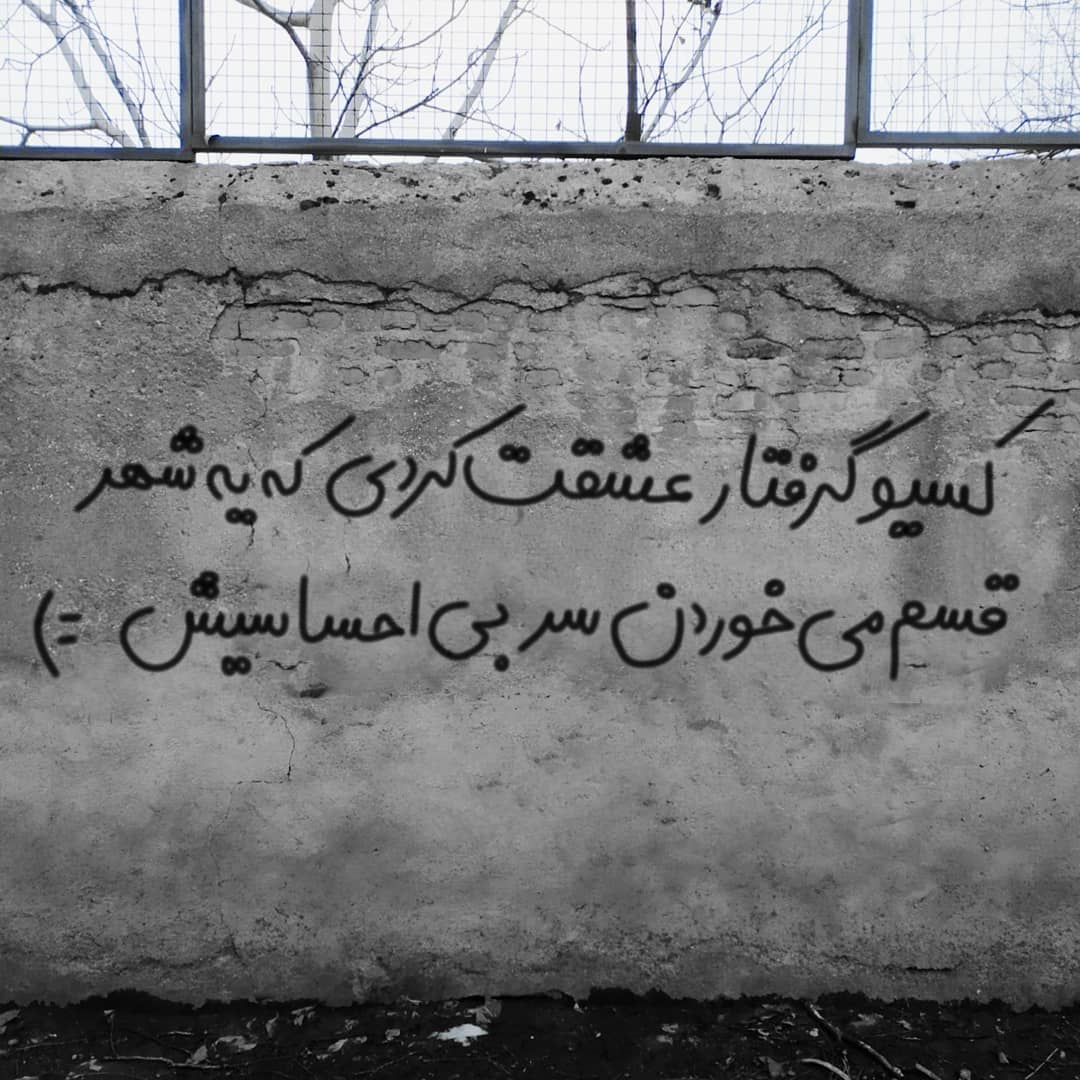 کسیو گرفتار عشقت کردی که یه شهر
قسم می خوردن سر بی احساسیش =)